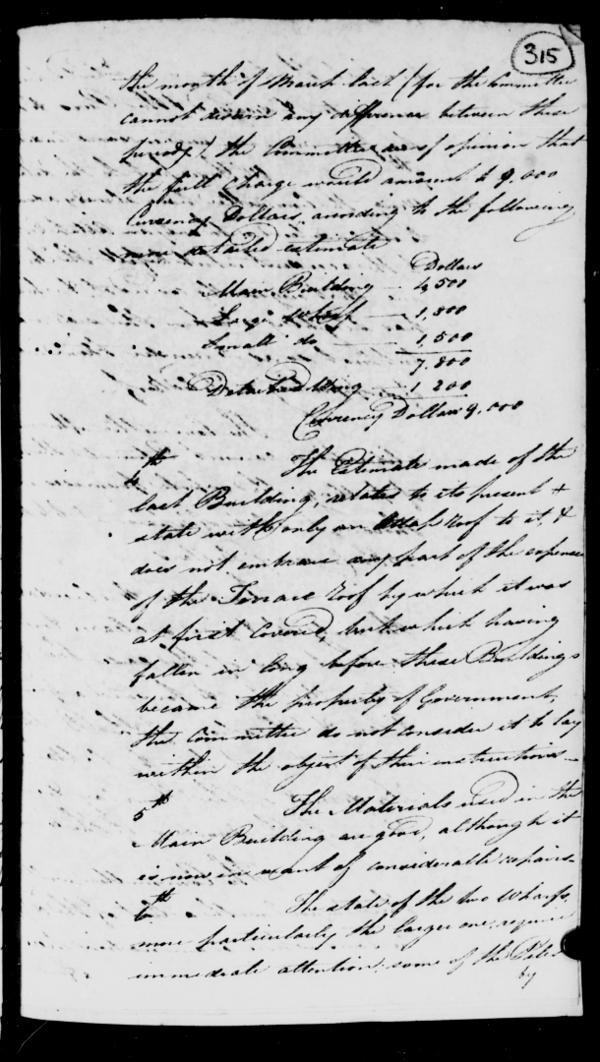 315
the month of March last (for the Committee
cannot discern any difference between these
periods) the Committee are of opinion that
the full charge would amount to 9,000
Currency Dollars, according to the following
more detailed estimate
Dollars
Main Building — 4,500
Large Wharf — 1,800
Small do — 1,500
7,800
Detached Wing — 1 200
Currency Dollars 9,000
4th The Estimate made of the
last Building, relates to its present
state with only an Attap roof to it, &
does not embrace any part of the expense
of the Terrace roof by which it was
at first covered, but which having
fallen in long before these Buildings
became the property of Government,
the Committee do not consider it to lay
within the object of their instructions —
5th The Materials used in the
Main Building are good, although it
is now in want of considerable repairs.
6th The state of the two Wharfs,
more particularly the larger one, require
immediate attention; some of the Piles
by